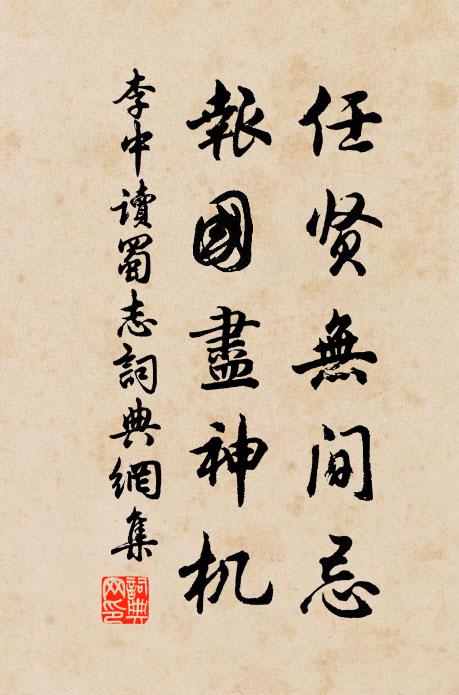 任贤無間忌
報國盡神机
李中讀蜀志詞典網集
詞典網印